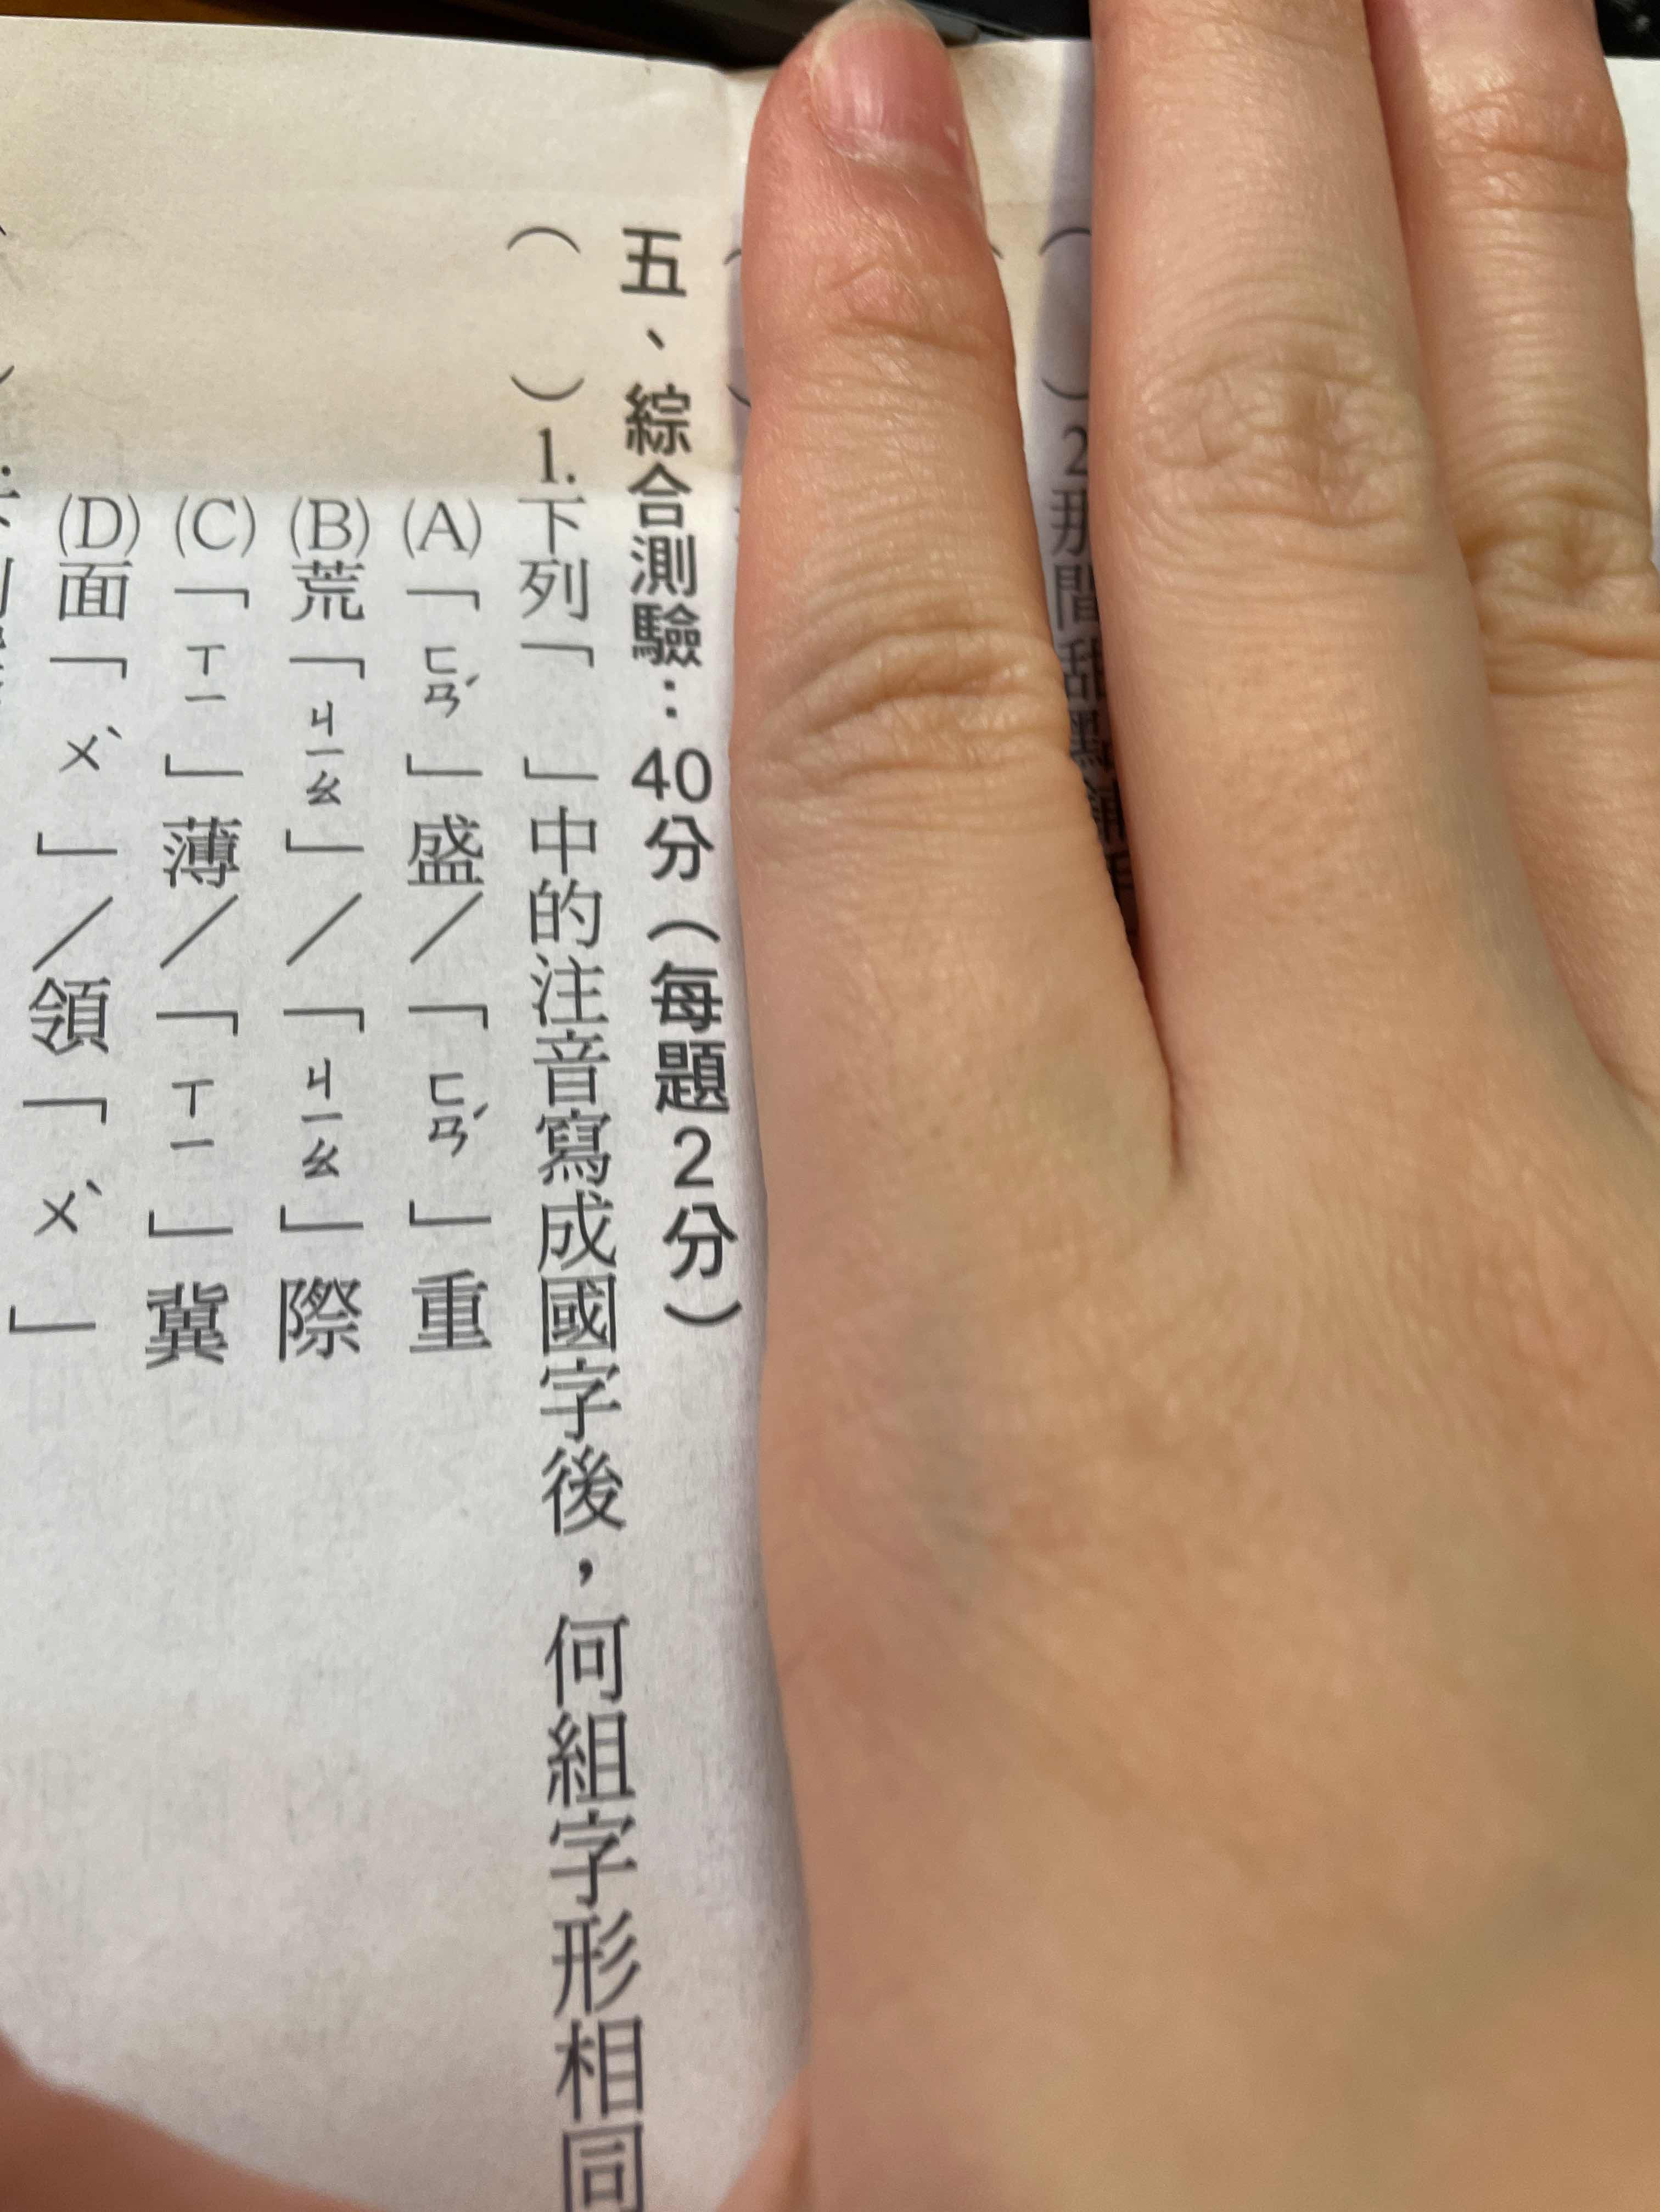 2.那間甜點
五、綜合測驗：40分（每題2分）
（　）1.下列「　」中的注音寫成國字後，何組字形相同
(A)「ㄈㄢˊ」盛／「ㄈㄢˊ」重
(B)荒「ㄐㄧㄠ」／「ㄐㄧㄠ」際
(C)「ㄒㄧ」薄／「ㄒㄧ」冀
(D)面「ㄨˋ」／領「ㄨˋ」